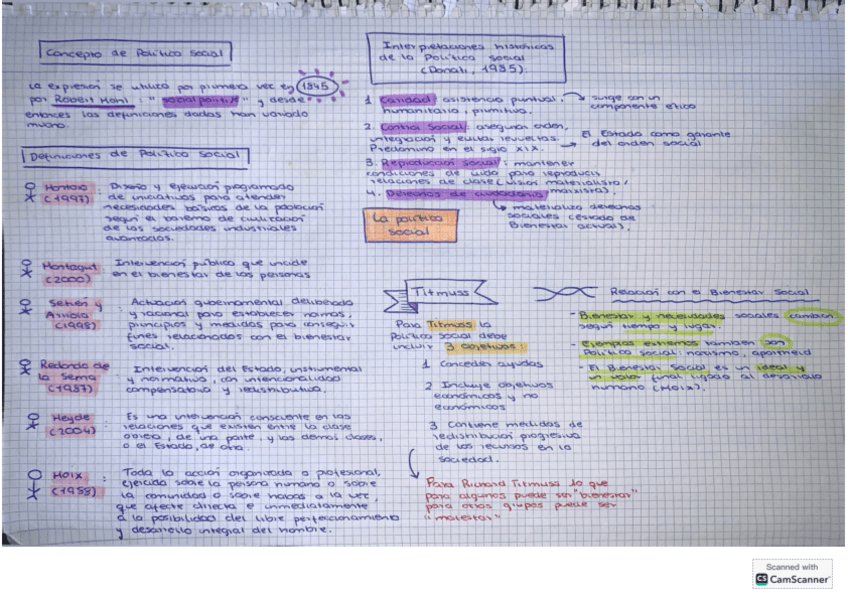 Concepto de Política Social
La expresión se utilizó por primera vez en 1845
por Robert Mohl: "social politik" y desde
entonces las definiciones dadas han variado
mucho.
Definiciones de Política Social
(1997)
: Diseño y ejecución programada
de iniciativas para atender
necesidades básicas de la población
según el baremo de civilización
de las sociedades industriales
avanzadas.
Montagut
(2000)
: Intervención pública que incide
en el bienestar de las personas
Setién y
Arriola
(1998)
: Actuación gubernamental deliberada
y racional para establecer normas,
principios y medidas para conseguir
fines relacionados con el bienestar
social.
Redondo de
la Serna
(1987)
: Intervención del Estado, instrumental
y normativa, con intencionalidad
compensatoria y redistributiva.
Heyde
(2004)
: Es una intervención consciente en las
relaciones que existen entre la clase
obrera, de una parte, y las demás clases,
o el Estado, de otra.
Moix
(1988)
: Toda la acción organizada o profesional,
ejercida sobre la persona humana o sobre
la comunidad o sobre ambas a la vez,
que afecte directa e inmediatamente
a la posibilidad del libre perfeccionamiento
y desarrollo integral del hombre.
Interpretaciones históricas
de la Política Social
(Donati, 1985):
1. Caridad: asistencia puntual,
humanitaria, primitiva.
surge con un
componente ético
2. Control Social: asegurar orden,
integración y evitar revueltas.
Predominó en el siglo XIX.
El Estado como garante
del orden social
3. Reproducción social: mantener
condiciones de vida para reproducir
relaciones de clase (visión materialista/
marxista).
4. Derechos de ciudadanía
materializa derechos
sociales (Estado de
Bienestar actual).
La política
social
Titmuss
Para Titmuss la
política social debe
incluir 3 objetivos:
1 Conceder ayudas
2 Incluye objetivos
económicos y no
económicos
3 Contiene medidas de
redistribución progresiva
de los recursos en la
sociedad.
Para Richard Titmuss lo que
para algunos puede ser "bienestar"
para otros grupos puede ser
"malestar"
Relación con el Bienestar Social
- Bienestar y necesidades sociales cambian
según tiempo y lugar.
- Ejemplos extremos también son
Política Social: nazismo, apartheid
- El Bienestar Social es un ideal y
un valor final ligado al desarrollo
humano (Moix).
Scanned with
CS CamScanner